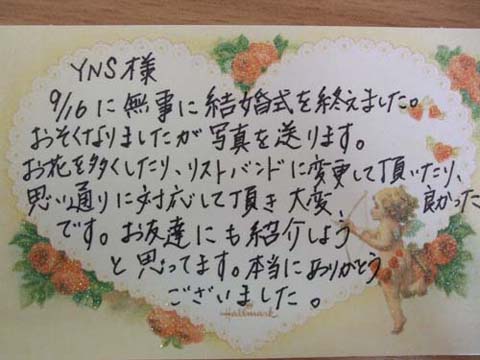 YNS様
9/16に無事に結婚式を終えました。
おそくなりましたが写真を送ります。
お花を多くしたり、リストバンドに変更して頂いたり、
思い通りに対応して頂き大変、良かった
です。お友達にも紹介しよう
と思ってます。本当にありがとう
ございました。
Hallmark